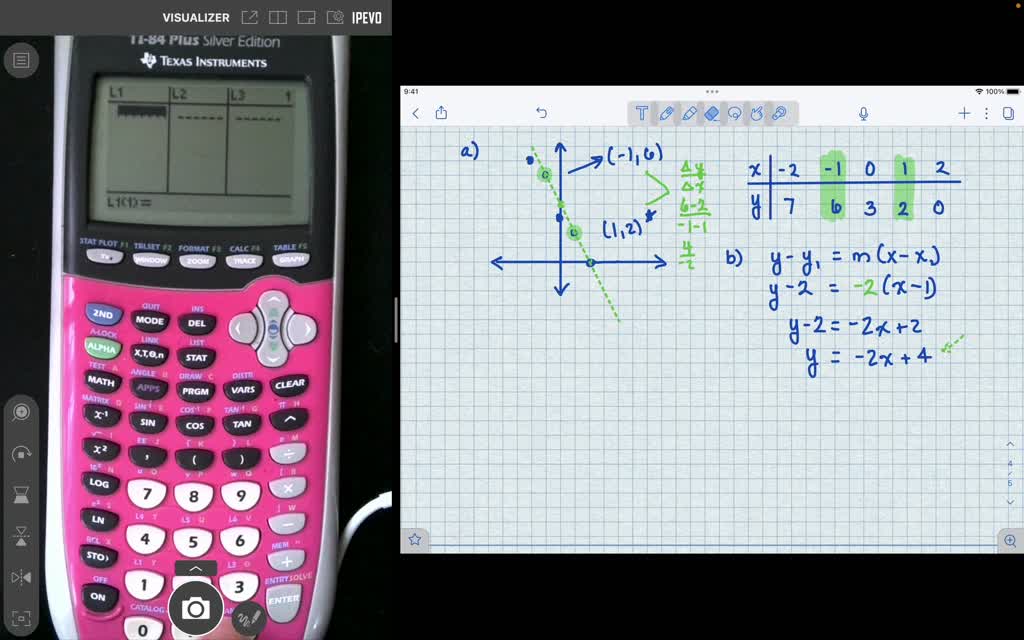 VISUALIZER IPEVO
TI-84 Plus Silver Edition
TEXAS INSTRUMENTS
L1 L2 L3 1
L1(1)=
STAT PLOT F1 TBLSET F2 FORMAT F3 CALC F4 TABLE F5
Y= WINDOW ZOOM TRACE GRAPH
QUIT INS
2ND MODE DEL
A-LOCK LINK LIST
ALPHA X,T,θ,n STAT
TEST A ANGLE B DRAW C DISTR
MATH APPS PRGM VARS CLEAR
MATRIX D SIN⁻¹ E COS⁻¹ F TAN⁻¹ G π H
x⁻¹ SIN COS TAN ^
√ I EE J { K } L e M
x² , ( ) ÷
10ˣ N u O v P w Q [ R
LOG 7 8 9 ×
eˣ S L4 T L5 U L6 V ] W
LN 4 5 6 −
RCL X L1 Y L3 θ MEM "
STO▸ 1 3 +
OFF CATALOG ENTRY SOLVE
ON 0 ENTER
9:41 100%
a) (-1,6)
(1,2)
Δy
Δx
6-2
-1-1
4
-2
x -2 -1 0 1 2
y 7 6 3 2 0
b) y - y₁ = m(x - x₁)
y - 2 = -2(x - 1)
y - 2 = -2x + 2
y = -2x + 4
4
5